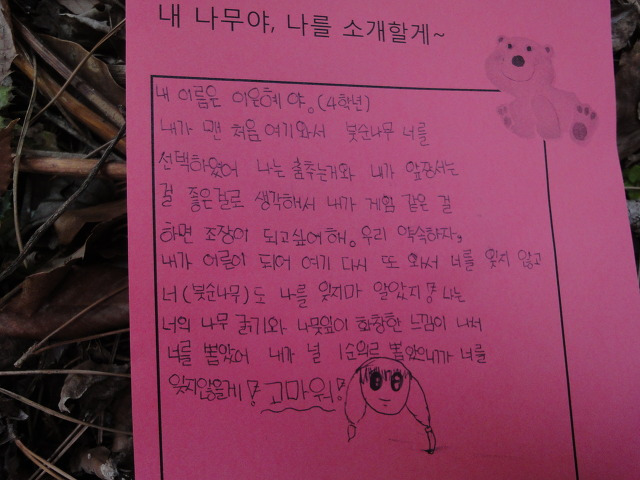 내 나무야, 나를 소개할게~
내 이름은 이은혜 야. (4학년)
내가 맨 처음 여기와서 붓순나무 너를
선택하였어 나는 춤추는거와 내가 앞장서는
걸 좋은걸로 생각해서 내가 게임 같은 걸
하면 조장이 되고싶어해. 우리 약속하자,
내가 어른이 되어 여기 다시 또 와서 너를 잊지 않고
너(붓순나무)도 나를 잊지마 알았지! 나는
너의 나무 굵기와 나뭇잎이 화창한 느낌이 나서
너를 뽑았어 내가 널 1순위로 뽑았으니까 너를
잊지않을게! 고마워!